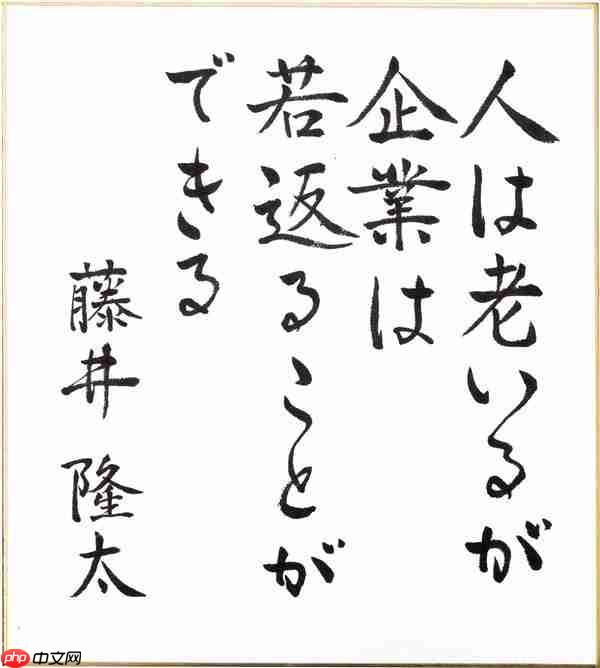 人は老いるが
企業は
若返ることが
できる
藤井 隆太
php 中文网